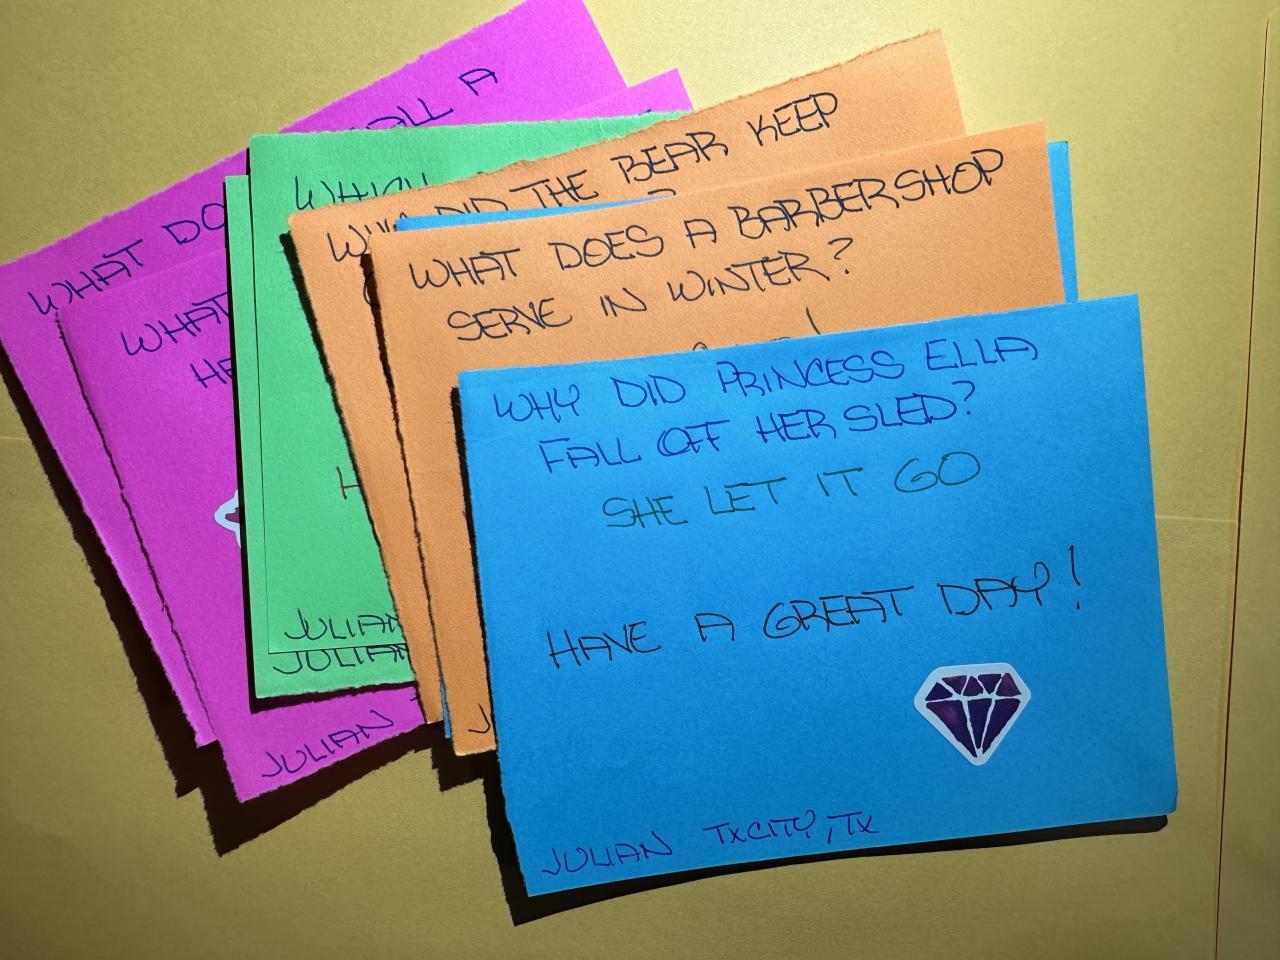 WHAT DO
ALL A
WHAT
HE
JULIAN
WHICH
JULIAN
JULIAN
WHY DID THE BEAR KEEP
WHAT DOES A BARBERSHOP
SERVE IN WINTER?
WHY DID PRINCESS ELLA
FALL OFF HER SLED?
SHE LET IT GO
HAVE A GREAT DAY!
JULIAN TXCITY, TX